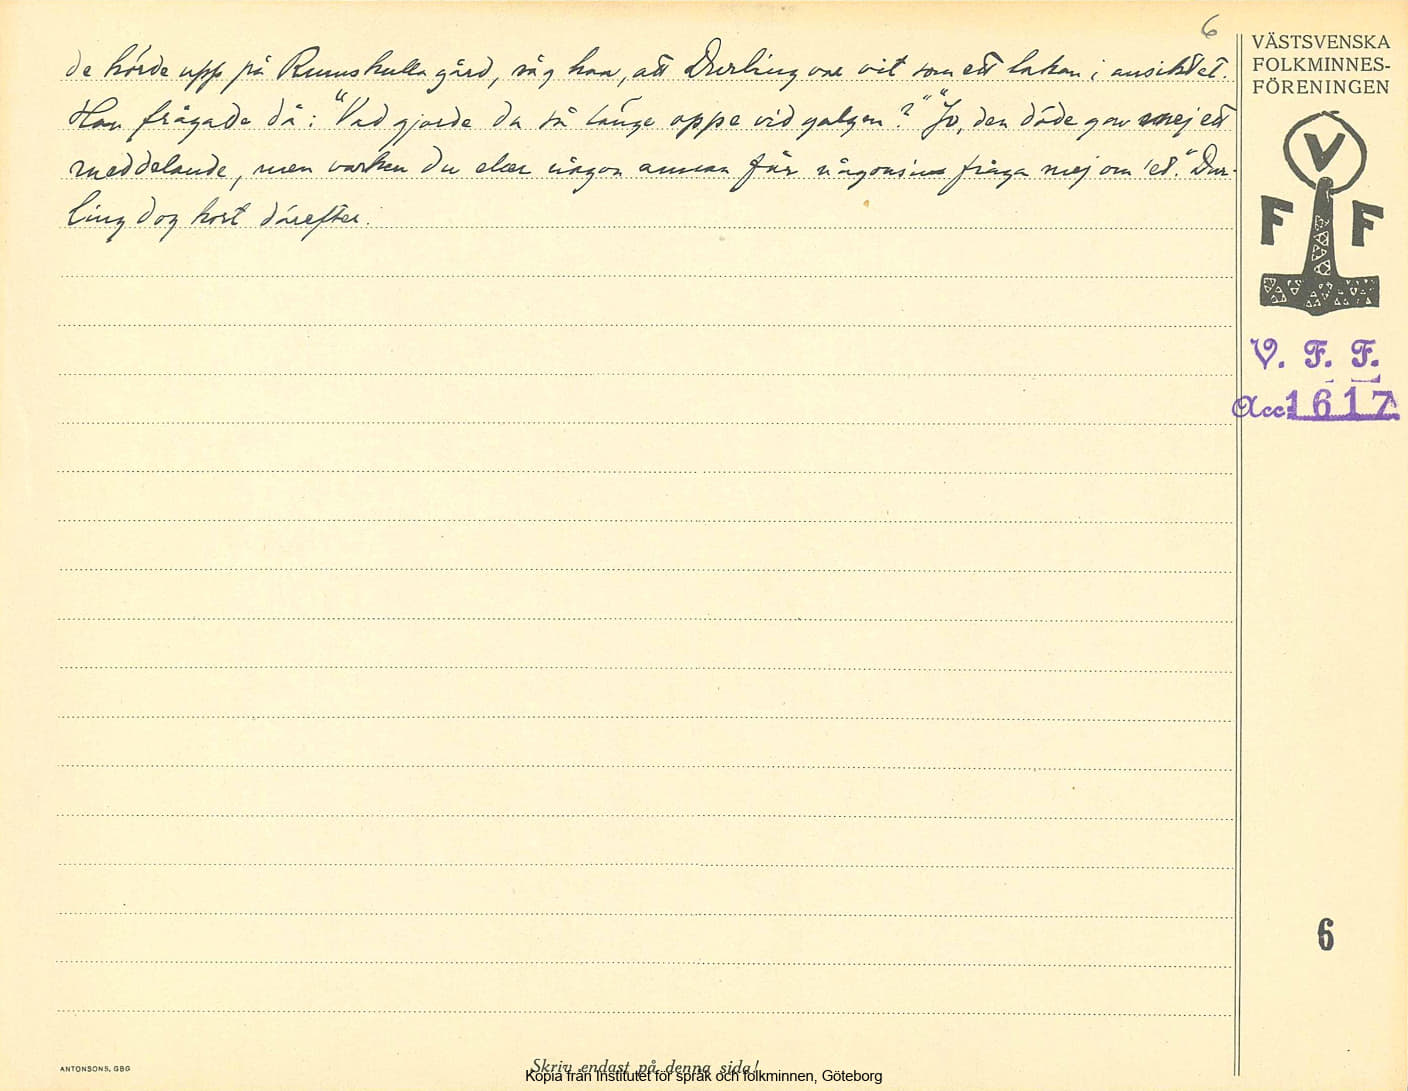 6
de körde upp på Rumskulla gård, såg han, att Durling var vit som ett lakan i ansiktet.
Han frågade då: "Vad gjorde du så länge oppe vid galgen?" "Jo, den döde gav mej ett
meddelande, men varken du eller någon annan får någonsin fråga mej om 'et." Dur-
ling dog kort därefter.
VÄSTSVENSKA
FOLKMINNES-
FÖRENINGEN
V
F F
V. F. F.
Acc: 1617
6
ANTONSONS, GBG
Skriv endast på denna sida!
Kopia från Institutet för språk och folkminnen, Göteborg